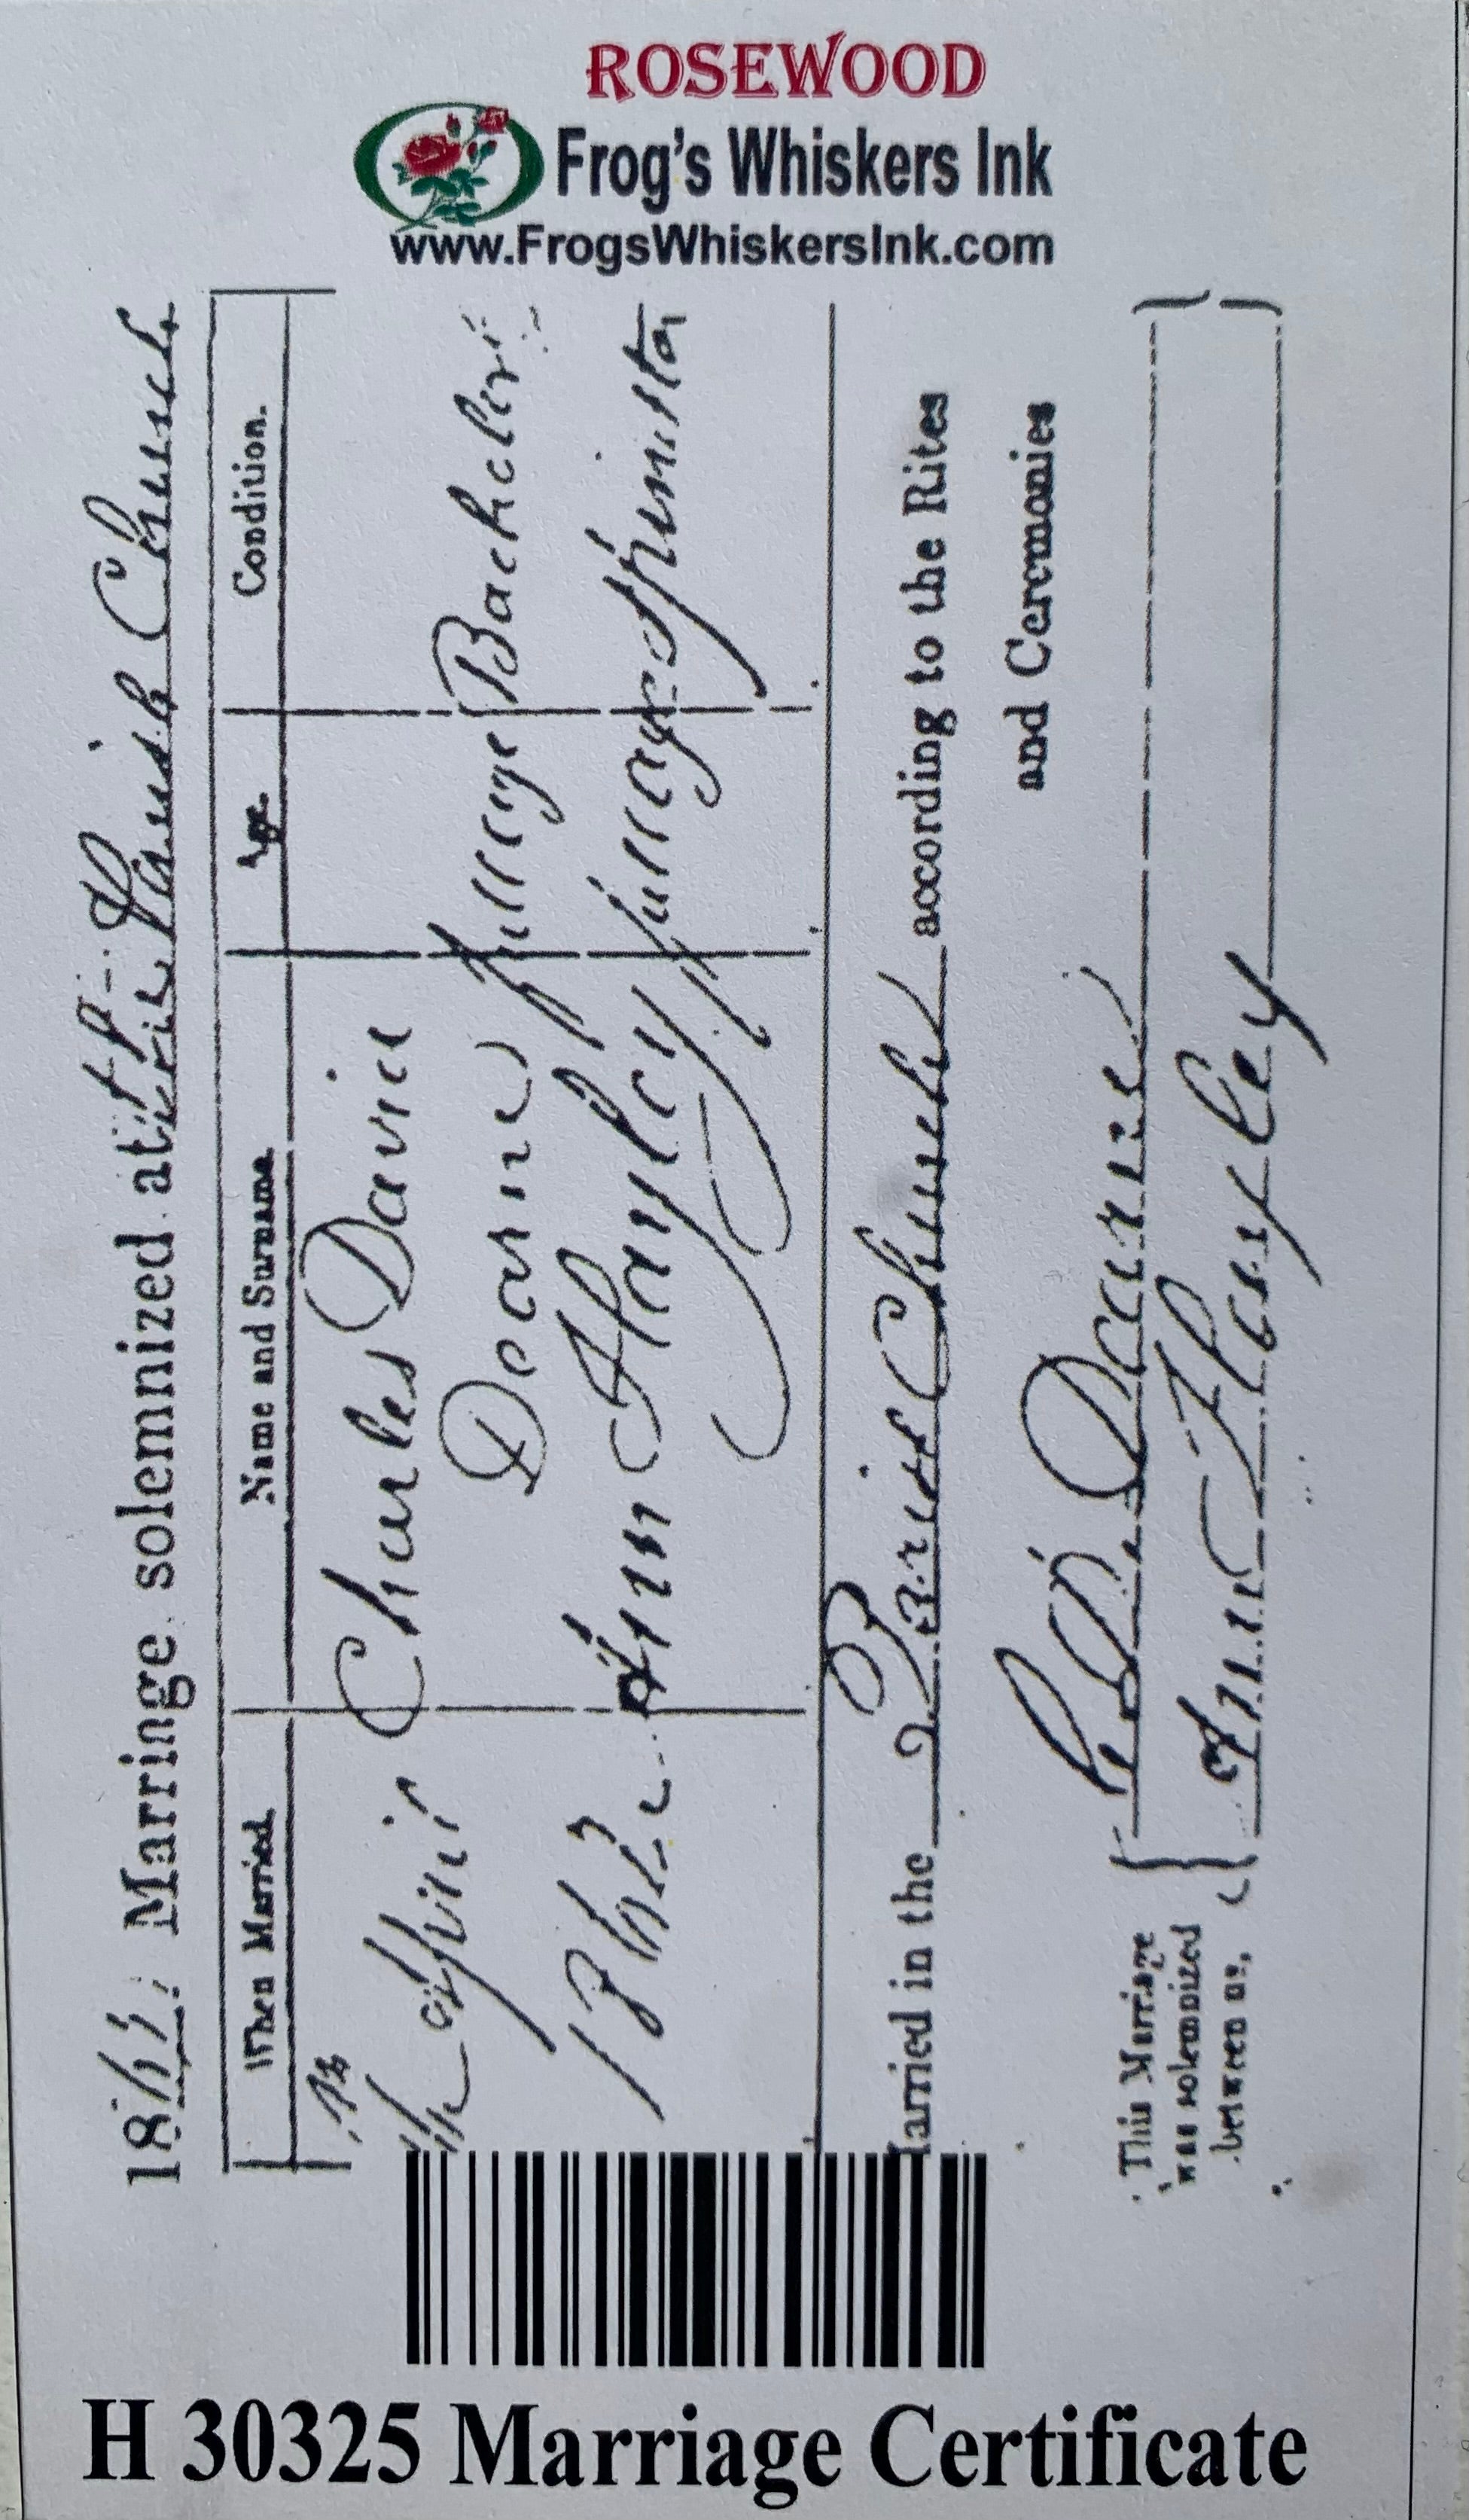 ROSEWOOD
Frog's Whiskers Ink
www.FrogsWhiskersInk.com
Marriage solemnized at Parish Church
When Married
Name and Surname
Age
Condition.
Charles David
Deane
full age
Bachelor
Ann Hayley
full age
Spinster
Married in the Parish Church according to the Rites
and Ceremonies
This Marriage
was solemnized
between us,
Ann Hayley
H 30325 Marriage Certificate